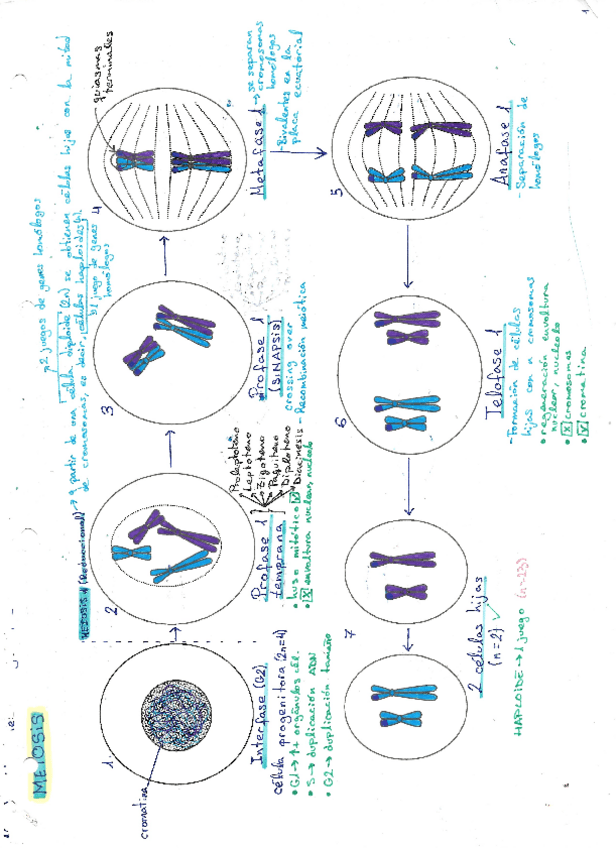 MEIOSIS
MEIOSIS I (Reduccional) → a partir de una célula diploide (2n) se obtienen células hijas con la mitad
→ 2 juegos de genes homólogos
de cromosomas, es decir, células haploides (n).
↳ 1 juego de genes
homólogos
1.
cromatina
Interfase (G2)
célula progenitora (2n=4)
• G1 → ↑ orgánulos cél.
• S → duplicación ADN
• G2 → duplicación tamaño
2
Profase 1
temprana
Proleptoteno
Leptoteno
Zigoteno
Paquiteno
Diploteno
Diacinesis
• huso mitótico V
• X envoltura nuclear, nucleolo
3
Profase 1
(SINAPSIS)
crossing over
- Recombinación meiótica
4
quiasmas
terminales
Metafase 1 → se separan
cromosomas
homólogos
- Bivalentes en la
placa ecuatorial
5
Anafase 1
- Separación de
homólogos
6
Telofase 1
- Formación de células
hijas con n cromosomas
• regeneración envoltura
nuclear, nucleolo
• X cromosomas
• V cromatina
7
2 células hijas
(n=2)
HAPLOIDE → 1 juego (n=23)
1